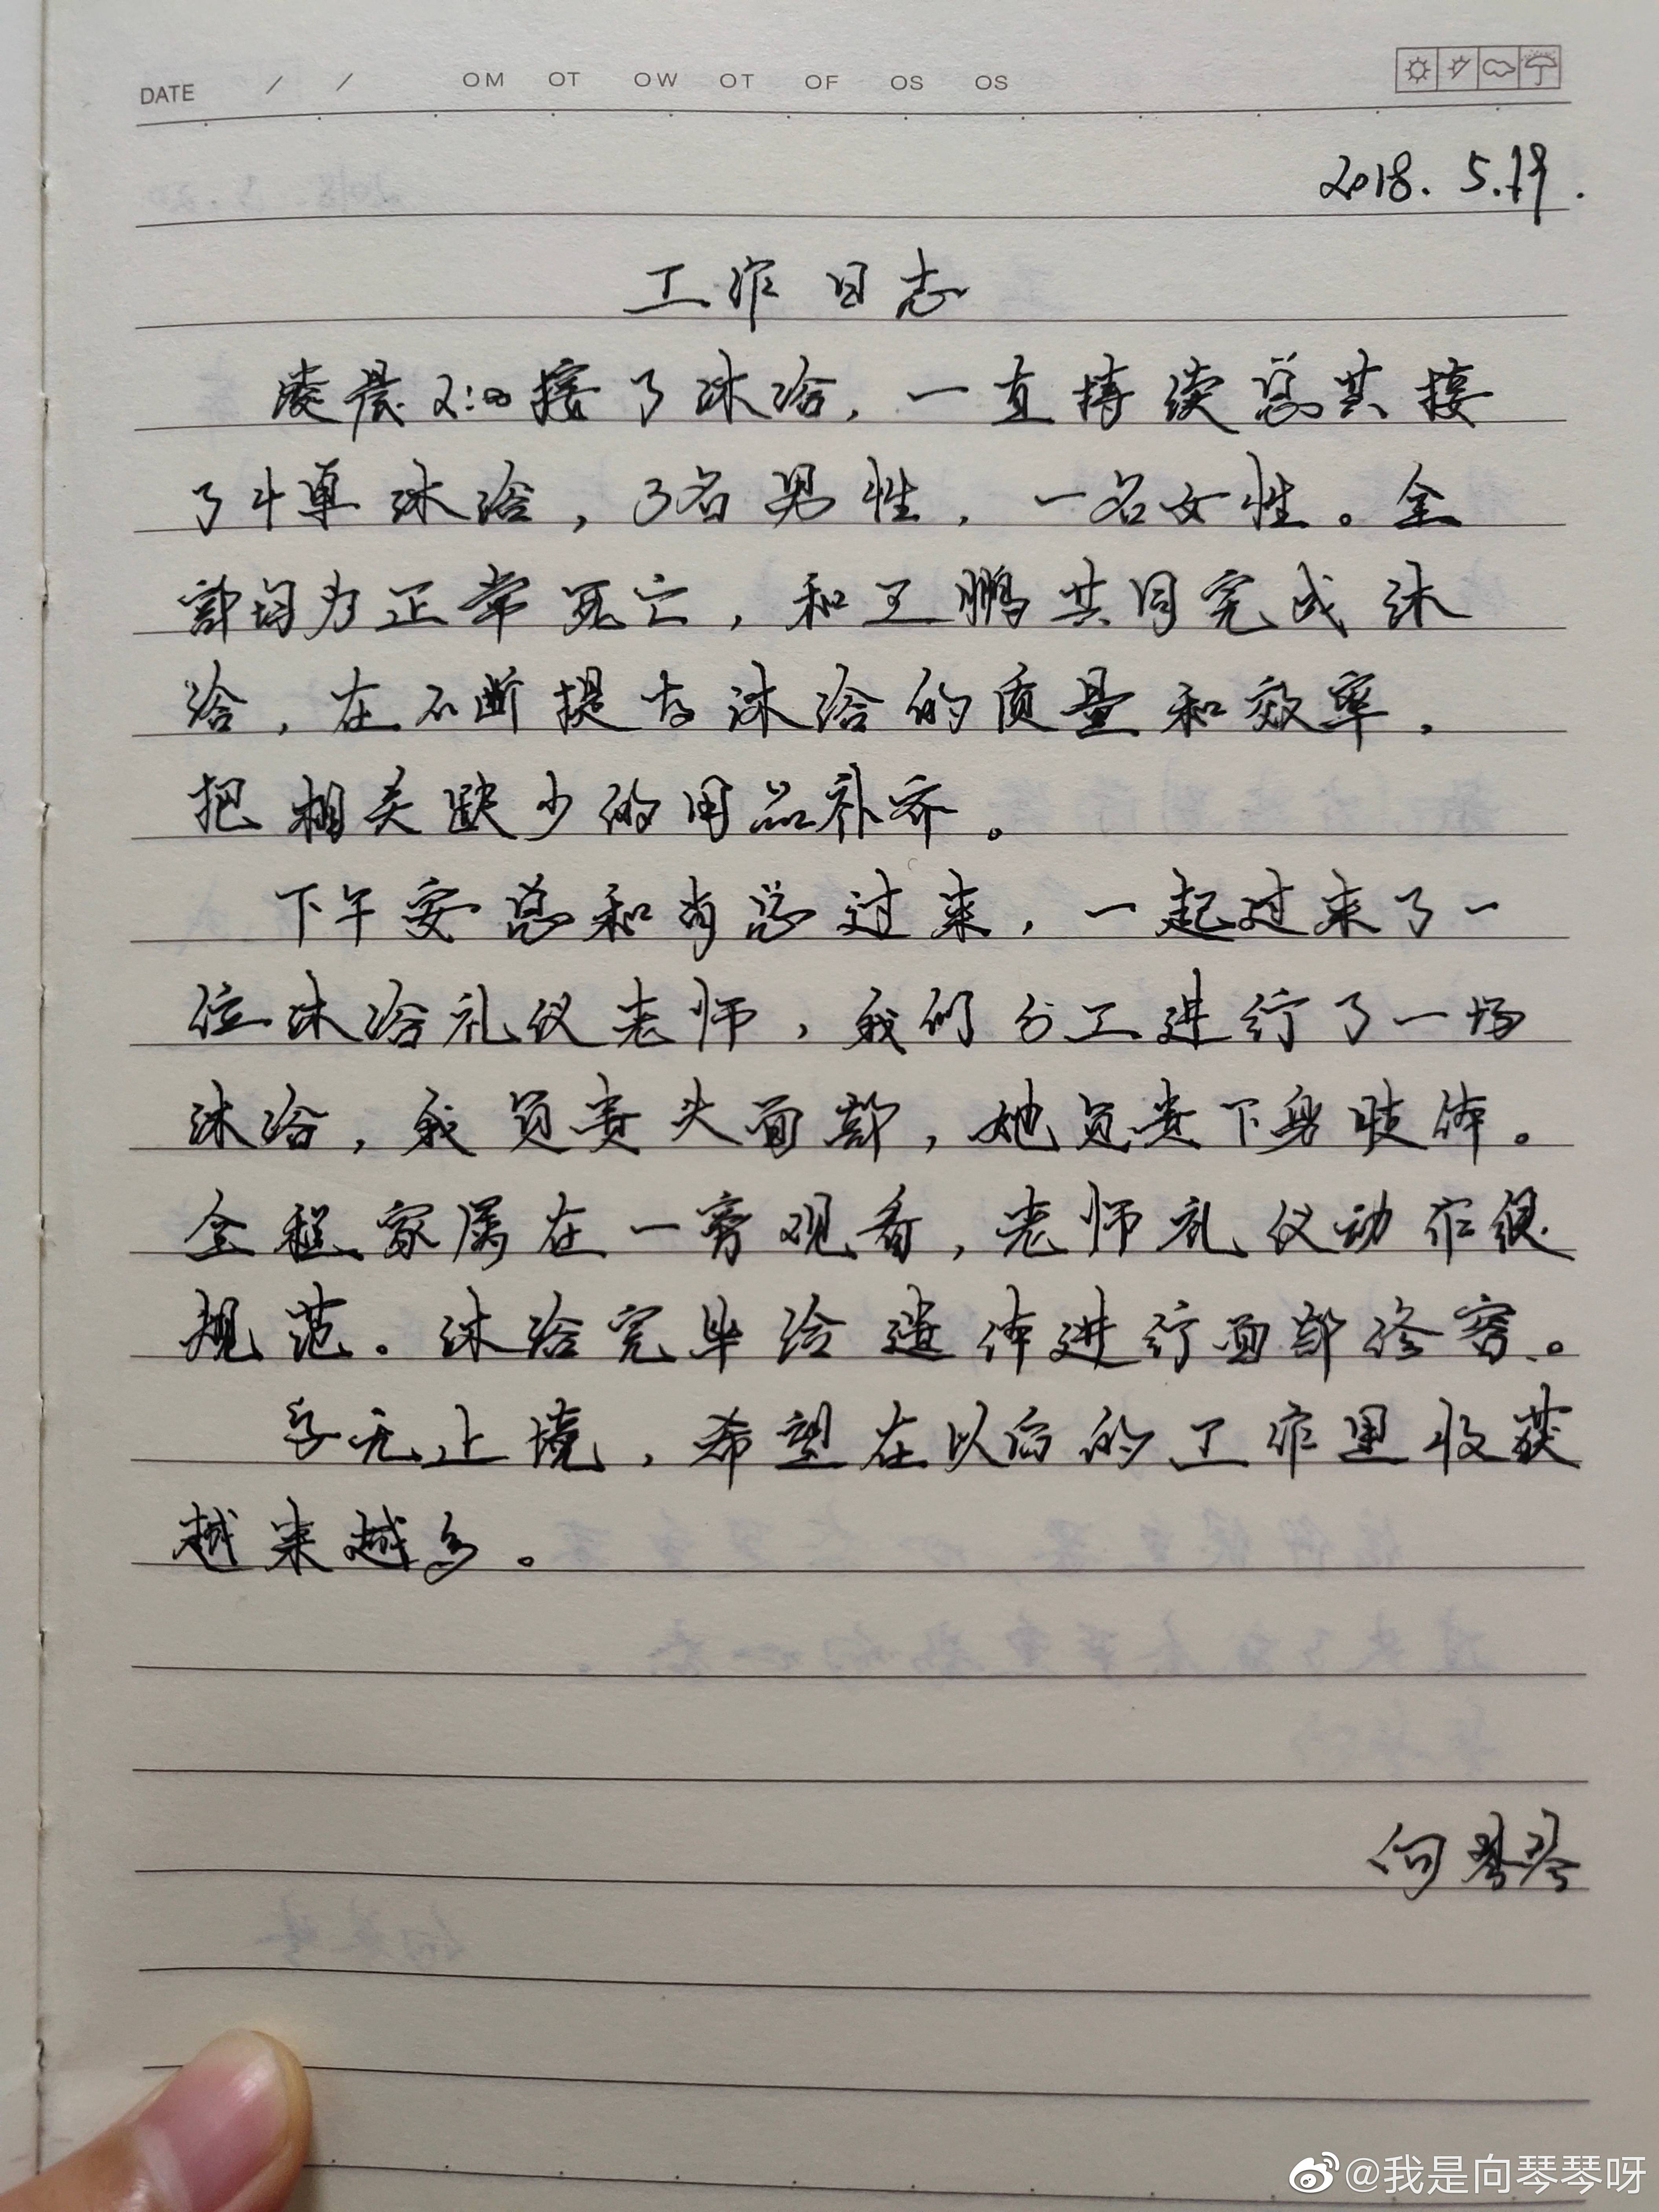 DATE / / OM OT OW OT OF OS OS
2018. 5.19.
工作日志
凌晨2:00接了沐浴,一直持续总共接
了4单沐浴,3名男性,一名女性。全
部均为正常死亡,和王鹏共同完成沐
浴,在不断提高沐浴的质量和效率,
把相关缺少的用品补齐。
下午安总和肖总过来,一起过来了一
位沐浴礼仪老师,我们分工进行了一场
沐浴,我负责头面部,她负责下身肢体。
全程家属在一旁观看,老师礼仪动作很
规范。沐浴完毕给遗体进行面部修容。
学无止境,希望在以后的工作里收获
越来越多。
向琴琴
@我是向琴琴呀